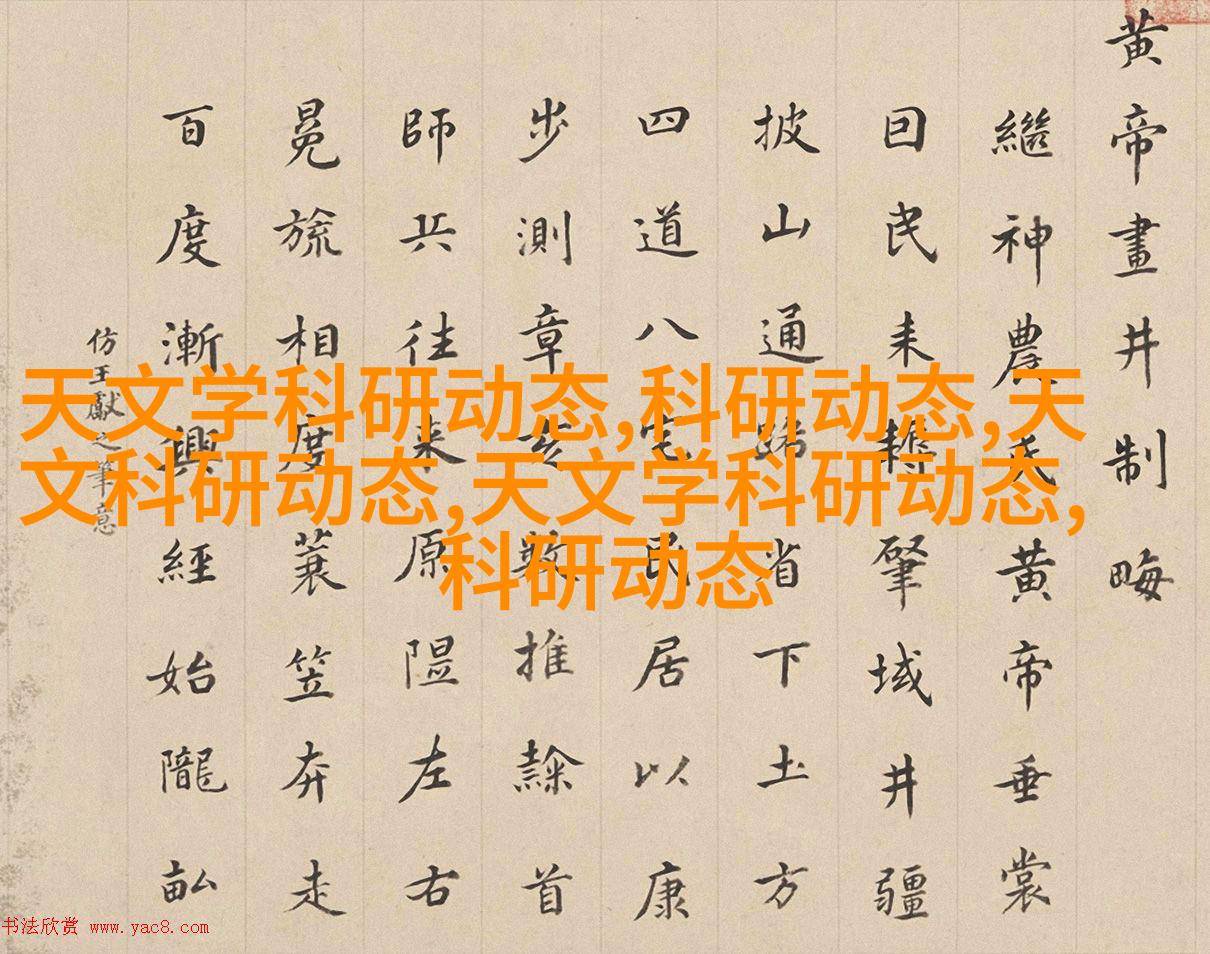 黄帝畫井制畮
繼神農氏黄帝垂裳
囙民耒耨肇域井疆
披山通路省下土方
四道八宅民居以康
步測章亥數推隸首
師兵往來原隰左右
冕旒相度蓑笠奔走
百度漸興經始隴畝
仿王獻之筆意
天文学科研动态,科研动态,天
文科研动态,天文学科研动态,
科研动态
书法欣赏 www.yac8.com